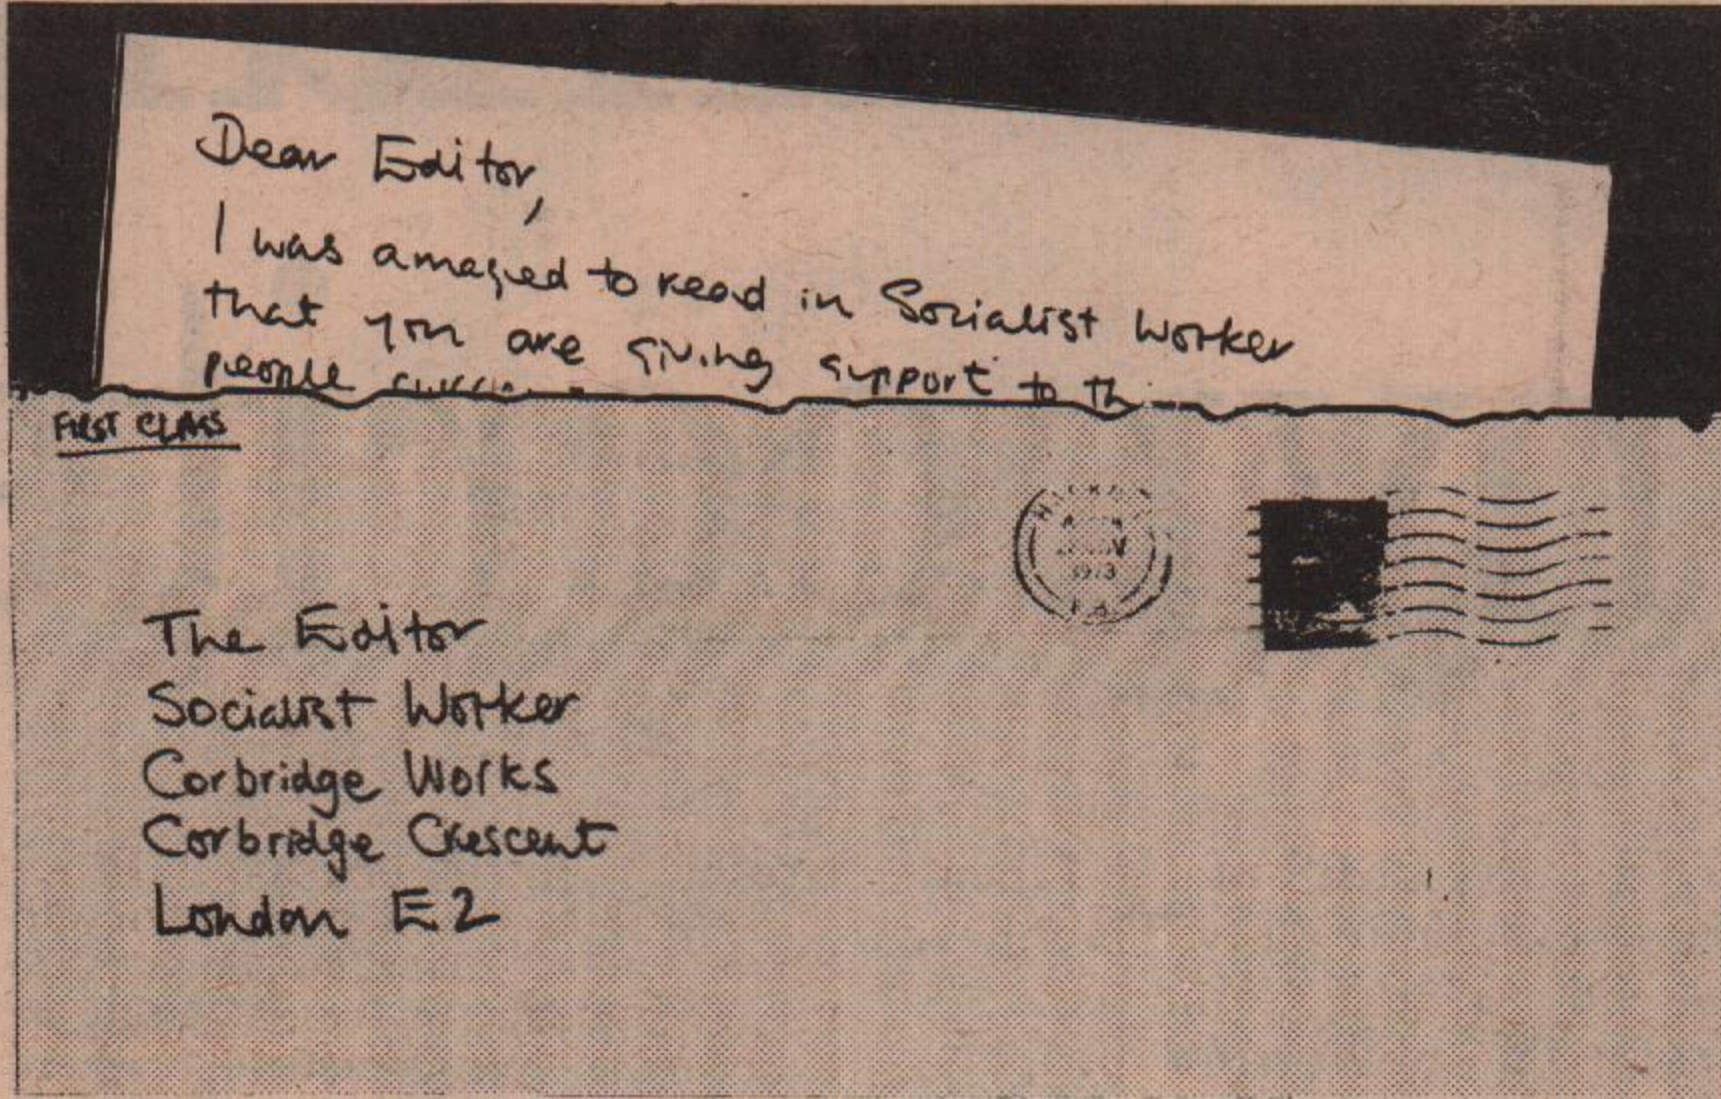 Dear Editor,
I was amazed to read in Socialist Worker
that you are giving support to
people
FIRST CLASS
1973
The Editor
Socialist Worker
Corbridge Works
Corbridge Crescent
London E2